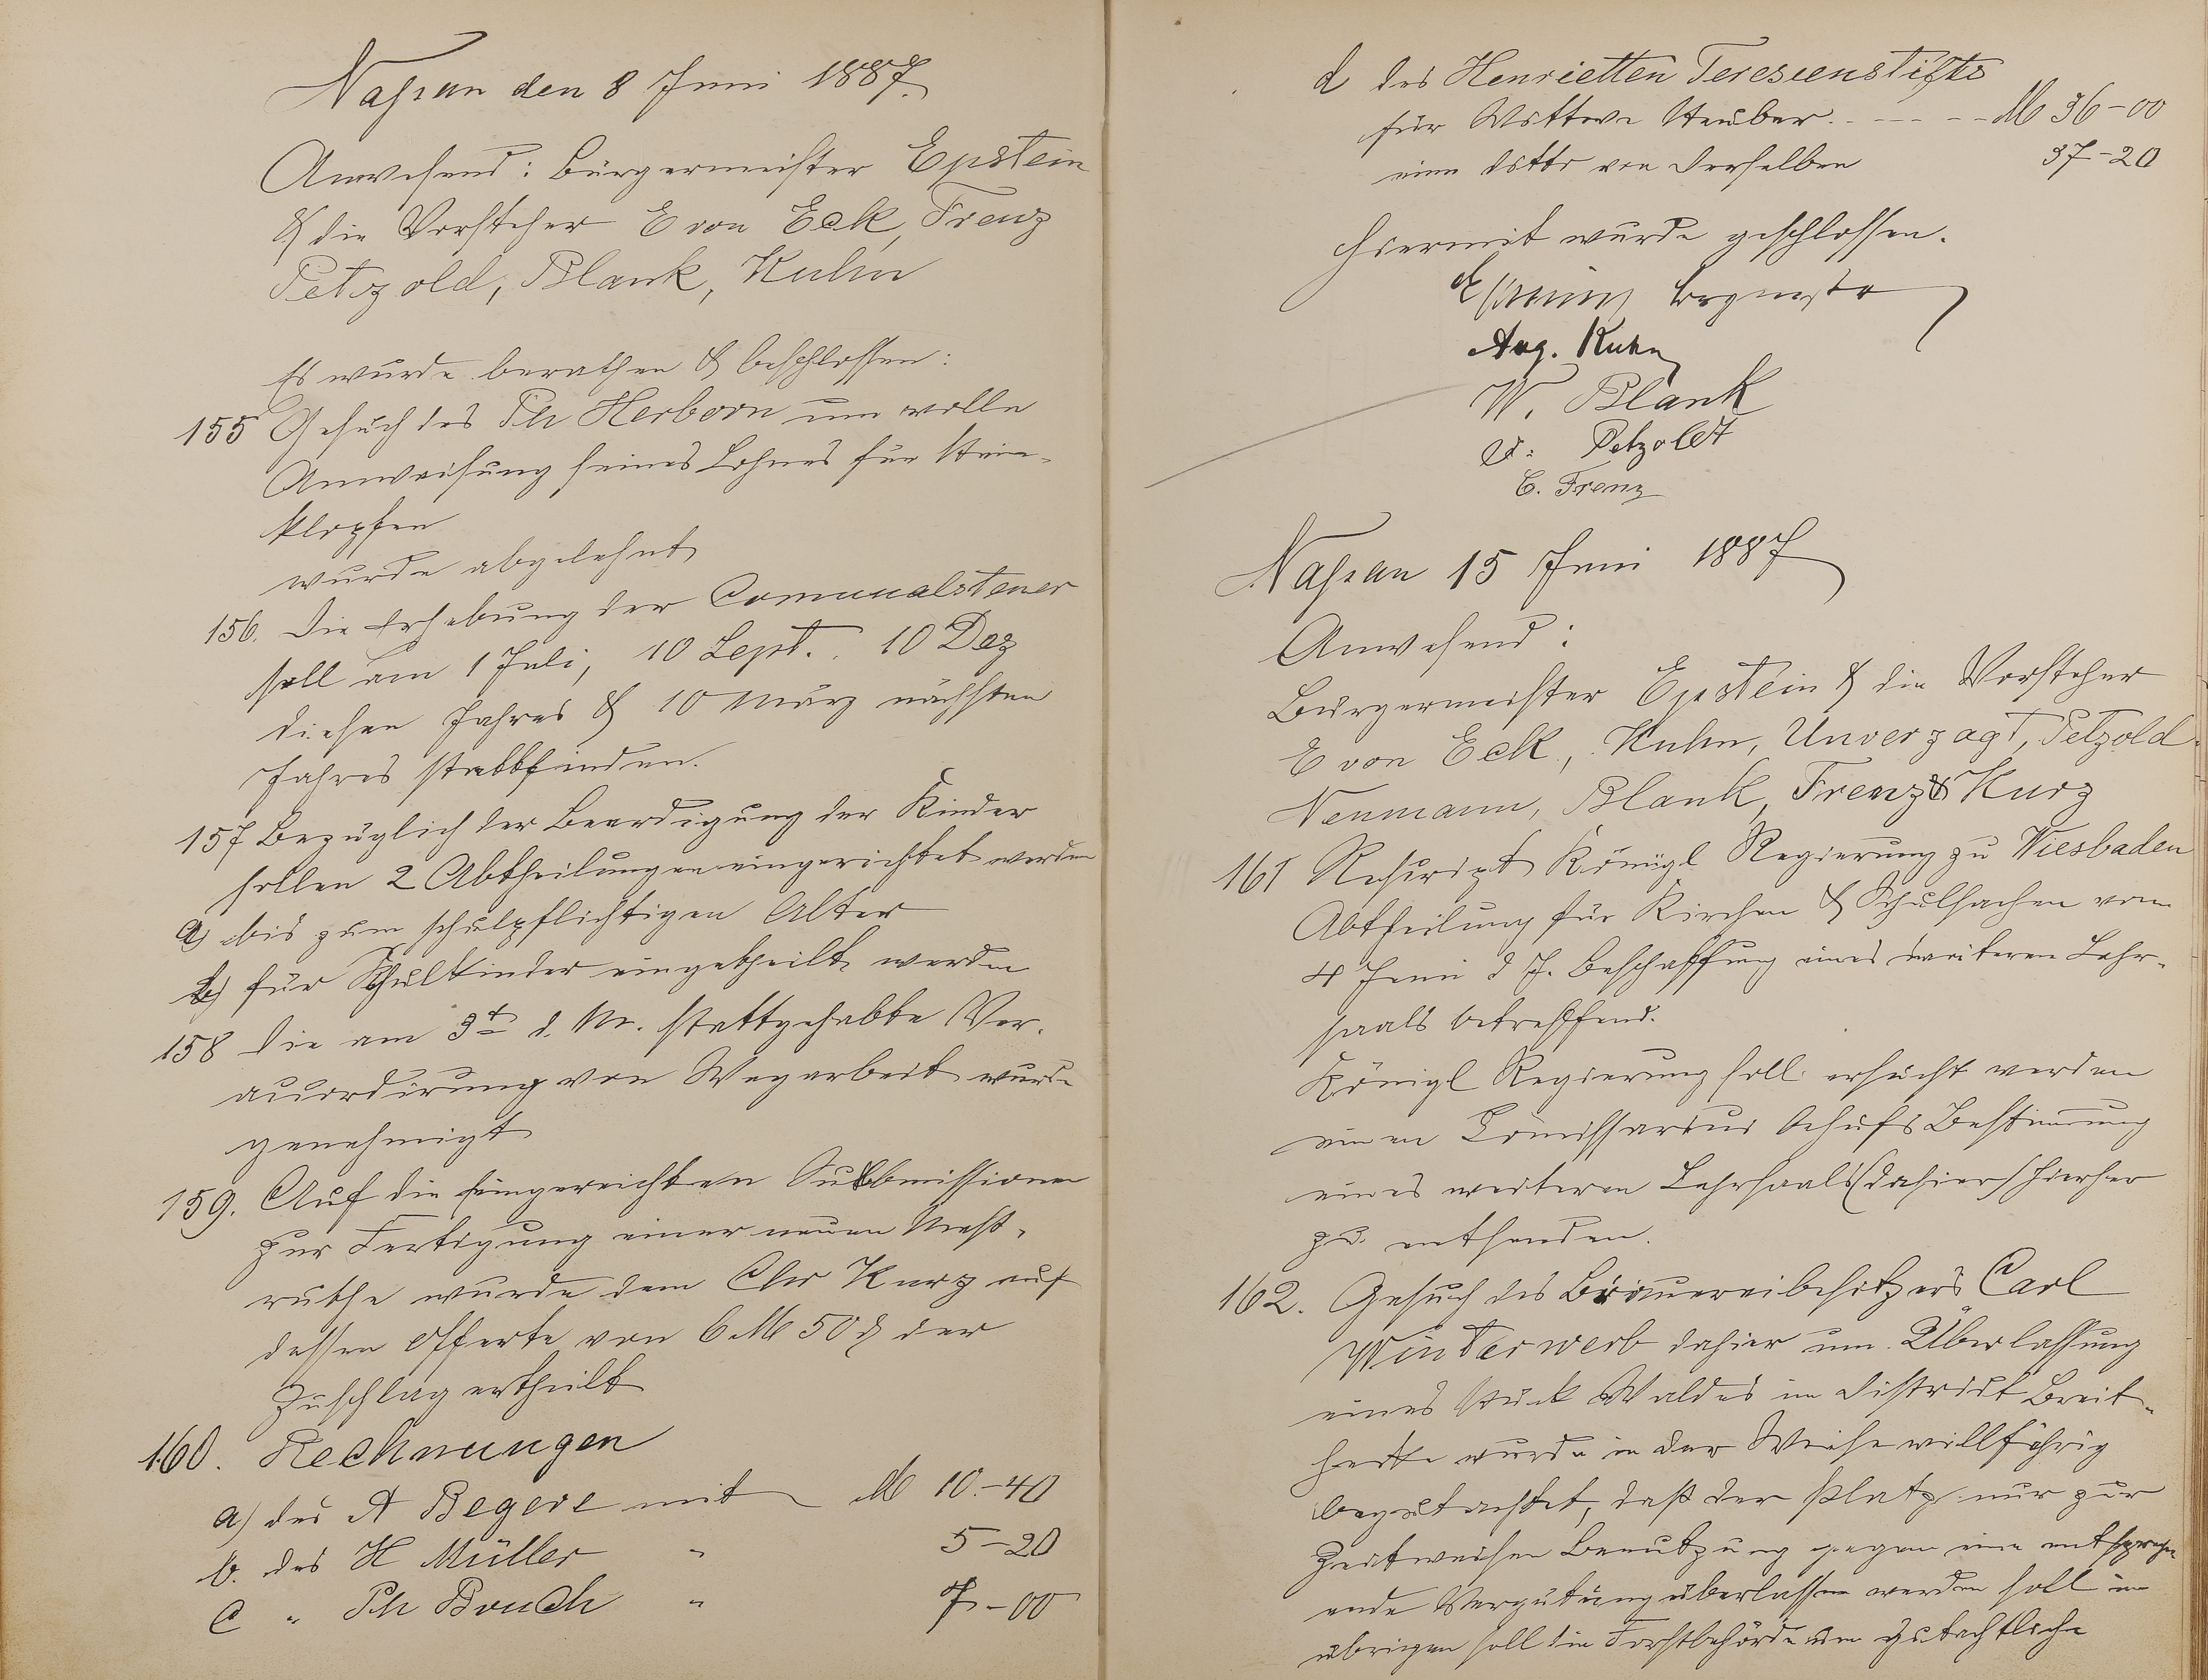 Nassau den 8 Juni 1887.
Anwesend: Bürgermeister Epstein
& die Vorsteher E von Eck, Frenz
Petzold, Blank, Kuhn
Es wurde berathen & beschlossen:
155 Gesuch des Ph Herborn um volle
Anweisung seines Lohnes für Stein-
klopfen
wurde abgelehnt
156. Die Erhebung der Comunalsteuer
soll am 1 Juli, 10 Sept. 10 Dez
diesen Jahres & 10 März nächsten
Jahres stattfinden.
157 Bezüglich der Beerdigung der Kinder
sollen 2 Abtheilungen eingerichtet werden
a) bis zum schulpflichtigen Alter
b) für Schulkinder eingetheilt werden
158 Die am 3t d. M. stattgehabte Ver-
accordirung von Wegarbeit wurde
genehmigt
159. Auf die eingereichten Submissionen
zur Fertigung einer neuen Meß-
ruthe wurde dem Chr Kurz auf
dessen Offerte von 6 M 50 ₰ der
Zuschlag ertheilt
160. Rechnungen
a) des A Begere mit M 10.-40
b. des H Müller " 5-20
c " Ph Bruch " 7-00
d des Henrietten Teresienstifts
für Wittwe Steuber - - - - - M 36-00
eine ditto von derselben 37-20
Hiermit wurde geschlossen.
Epstein Brgmstr
Aug. Kuhn
W. Blank
Petzoldt
C. Frenz
Nassau 15 Juni 1887
Anwesend:
Bürgermeister Epstein & die Vorsteher
E von Eck, Kuhn, Unverzagt, Petzold
Neumann, Blank, Frenz & Kurz
161 Rescript Königl Regierung zu Wiesbaden
Abtheilung für Kirchen & Schulsachen vom
4 Juni d J. Beschaffung eines weiteren Lehr-
saals betreffend.
Königl Regierung soll ersucht werden
einen Comissarius behufs Bestimung
eines weiteren Lehrsaals (dahier) hierher
zu entsenden.
162. Gesuch des Brauereibesitzers Carl
Winterwerb dahier um Überlassung
eines Stück Waldes im District Breit-
hecke wurde in der Weise willfährig
begutachtet, daß der Platz nur zur
zeitweisen Benutzung gegen eine entsprech
ende Vergütung überlassen werden soll im
übrigen soll die Forstbehörde um gutachtliche